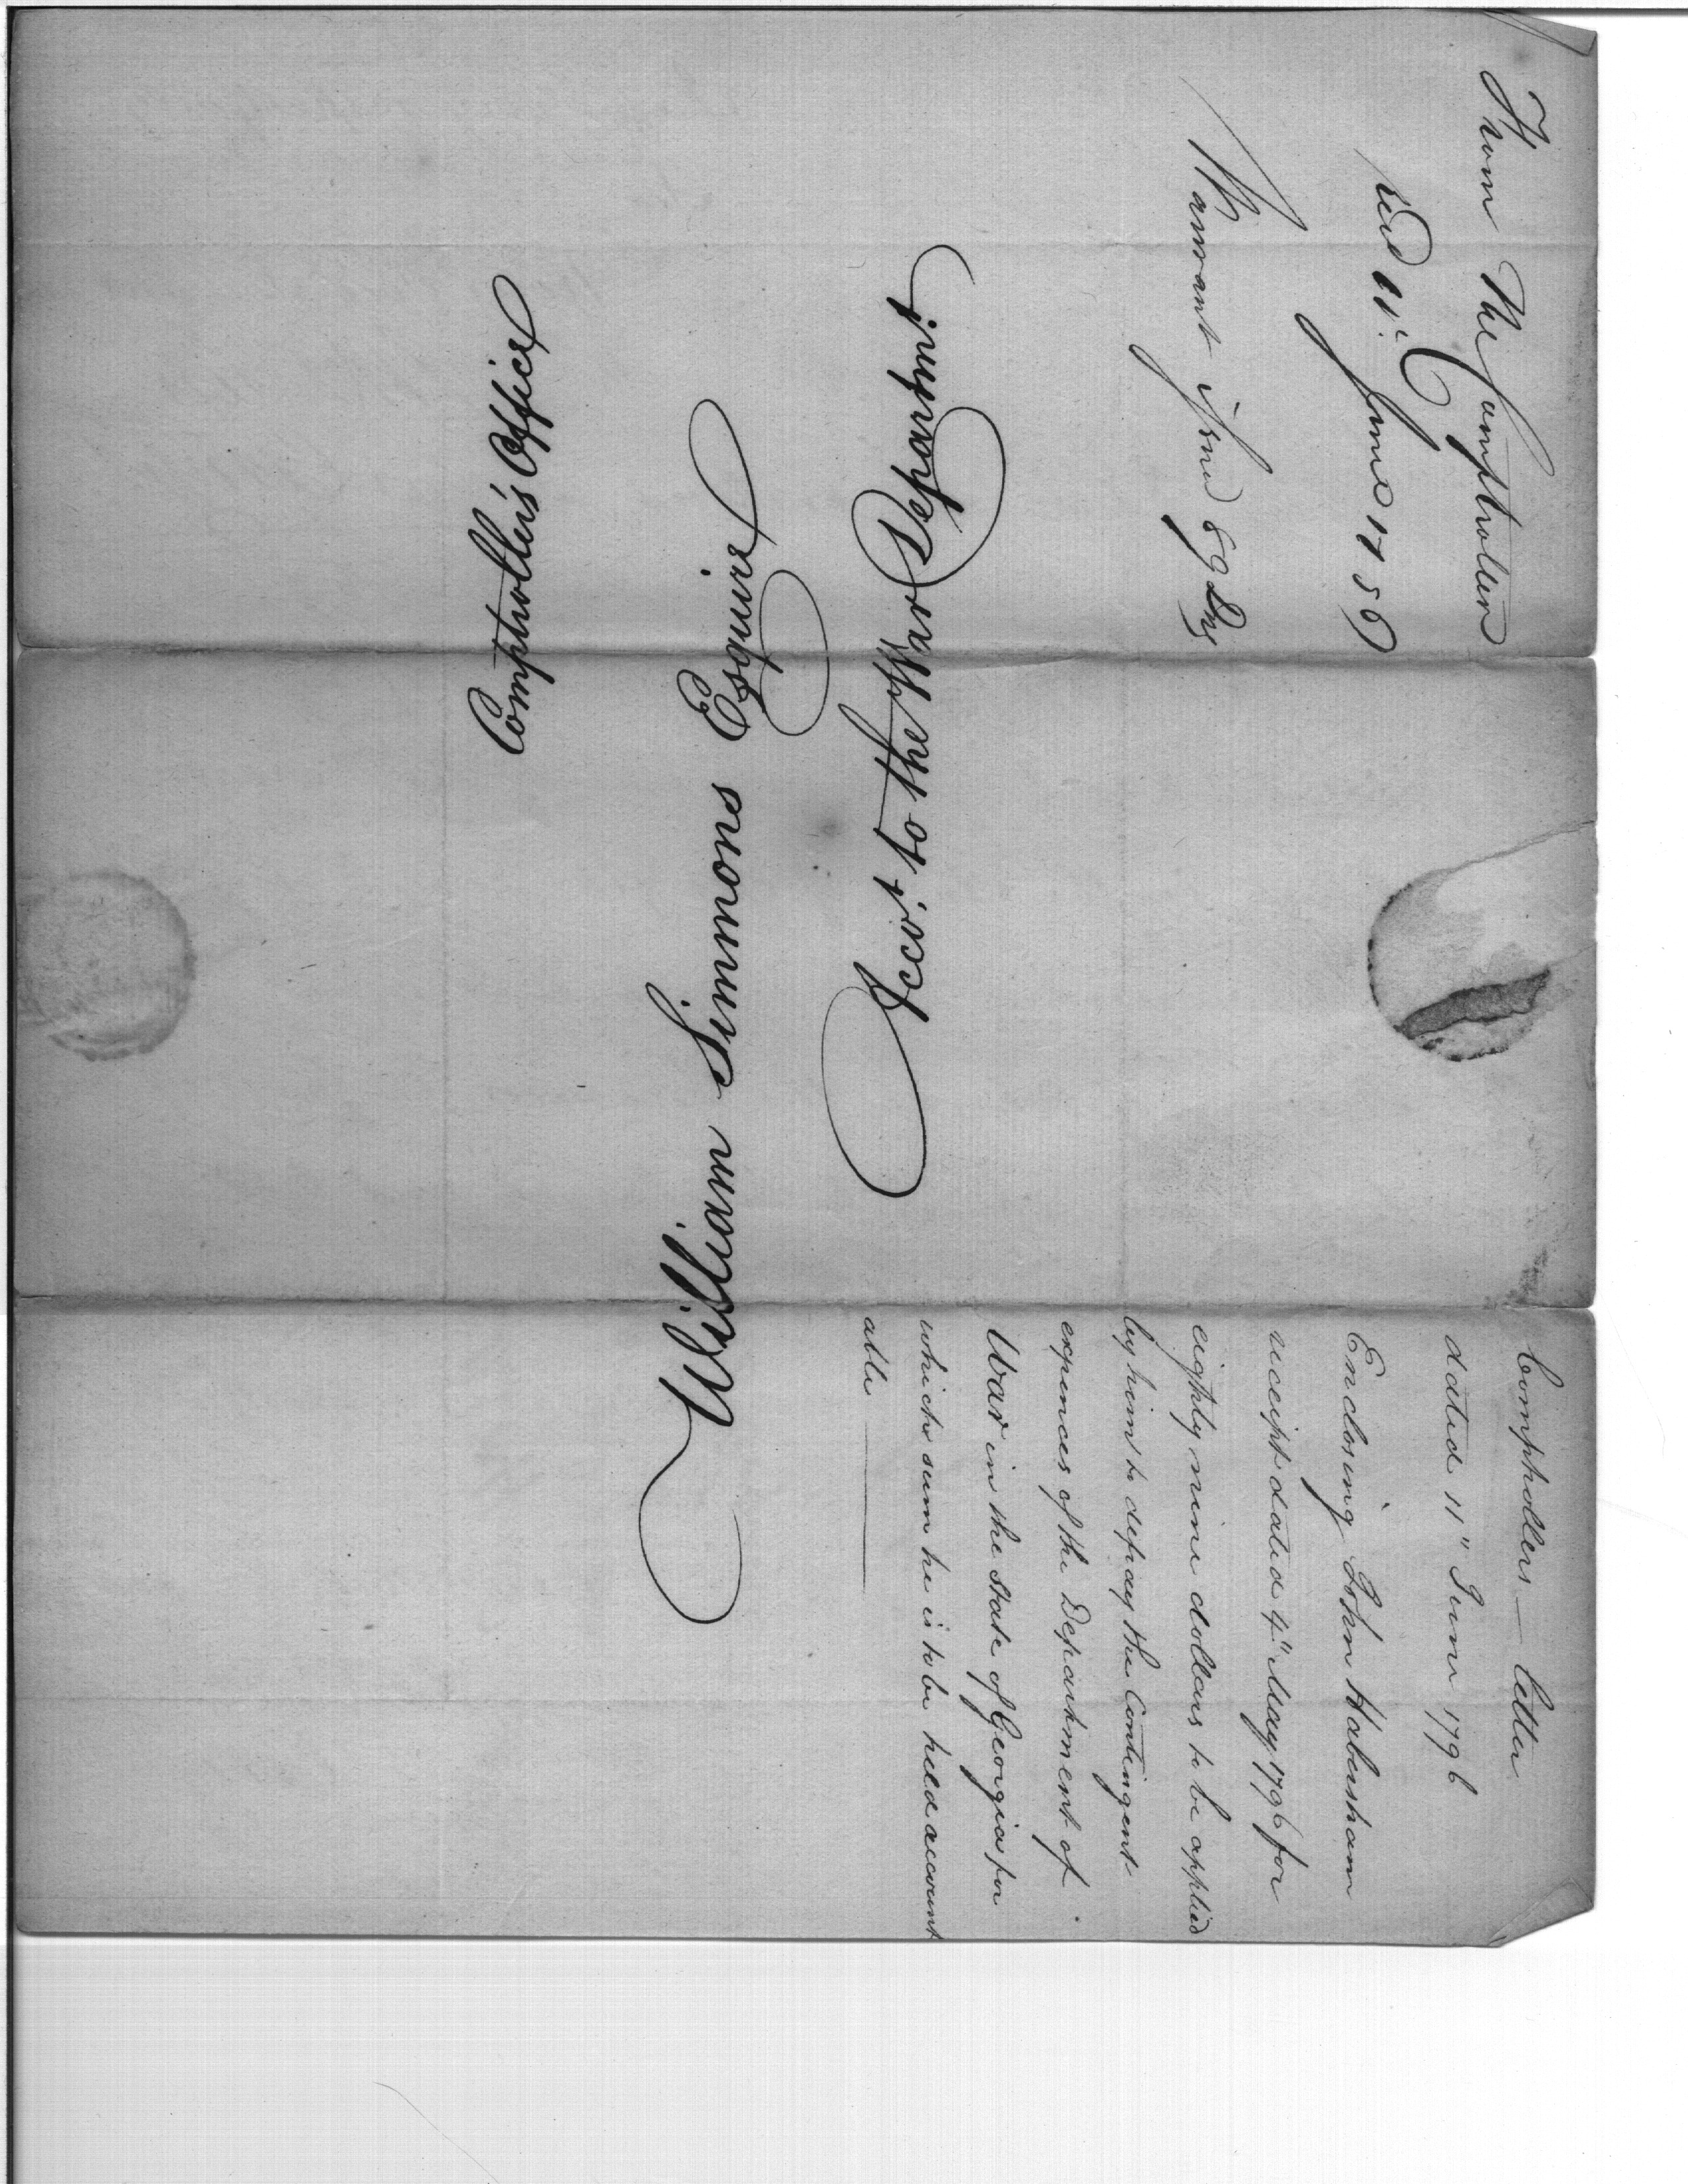 From The Comptroller
Recd 11th June 1796
Warrant issued 89 Drs
William Simmons Esquire
Accot. to the War Departmt.
Comptroller's Office
Comptrollers — letter
dated 11" June 1796
Enclosing John Habersham
receipt dated 4" May 1796 for
eighty nine dollars to be applied
by him to defray the Contingent
expences of the Department of
War in the state of Georgia for
which sum he is to be held account
able